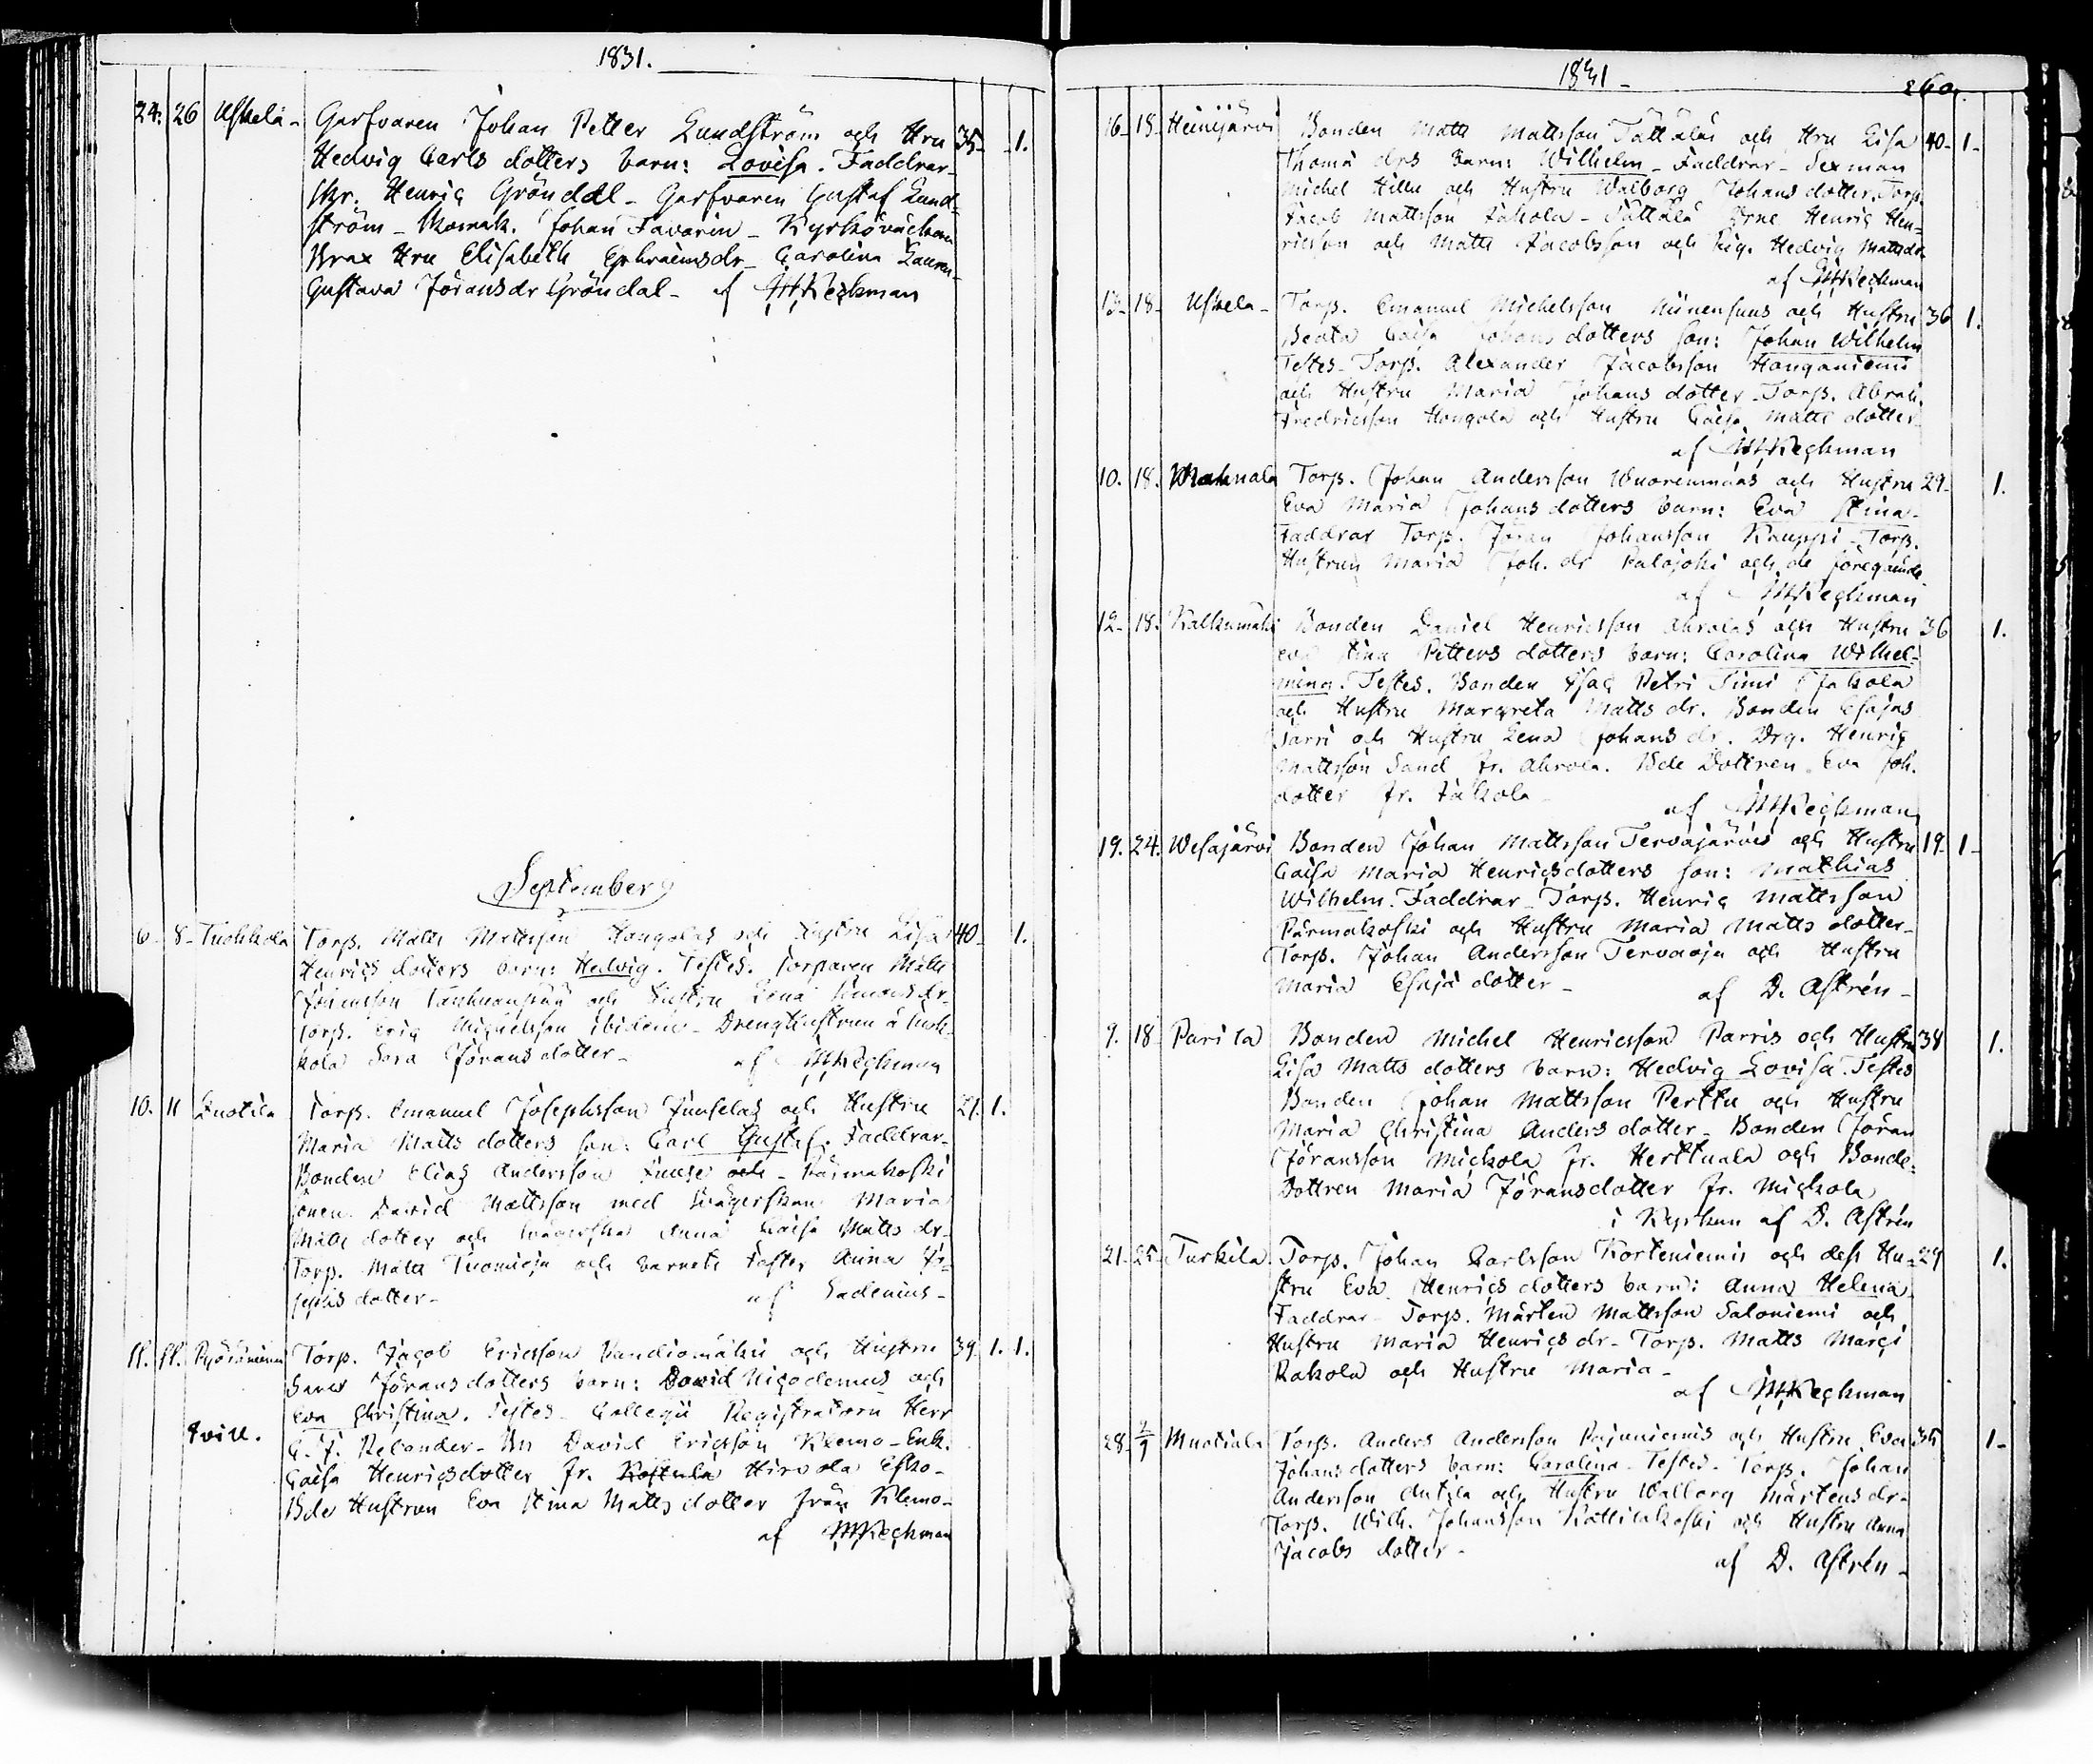 1831.
24. 26 Uskela - Garfvaren Johan Petter Lundström och Hru 35 - 1.
Hedvig Carls dotters barn: Lovisa. Faddrar -
Skr. Henric Gröndal - Garfvaren Gustaf Lund-
ström - Skomak. Johan Favorin - Kyrkoväcktaren
Brax Hru Elisabeth Ephraimsdr - Carolina Lauren-
Gustava Jöransdr Gröndal - af Reckman
September
6 - 8 - Tuohkola Torp. Matts Mattsson Kangolas och Hustru Lisa 40 - 1.
Henrics dotters barn: Hedvig. Testes. Torparen Matts
och Hustru Lena Simonsdr -
Torp. Eric Michelsson ibidem - Dräng Hustrun å Tuoh-
kola Sara Jörans dotter - af Reckman
10. 11 Luotila Torp. Emanuel Josephsson Junselas och Hustru 21. 1.
Maria Matts dotters son: Carl Gustaf. Faddrar -
Bonden Elias Andersson och - Pärmakoski
sonen David Mattsson med Svägerskan Maria
Matts dotter och Svägerska Anna Caisa Matts dr -
Torp. Matts Tuomioja och barnets Faster Anna Jo-
sephs dotter - af Ladenius -
11. 11. Pyöräniemi Torp. Jacob Ericsson Kandiomäki och Hustru 39. 1. 1.
Jörans dotters barn: David Nicodemus och
Eva Christina. Testes - Collegii Registratorn Herr
tvill. C. J. Relander - Bn David Ericsson Klemo - Enk.
Caisa Henricsdotter fr. Hirvola Esko -
Bde Hustrun Eva Stina Matts dotter från Klemo -
af Reckman
1831 - 260.
16 - 18 - Heinijärvi Bonden Matts Mattsson Tättäläs och Hru Lisa 40 - 1 -
Thomæ drs barn: Wilhelm - Faddrar - Sexman
Michel Hillu och Hustru Walborg Johans dotter. Torp.
Jacob Mattsson Jakola - Tättälä Henric Hen-
ricsson och Matts Jacobsson och Pig. Hedvig Mattsdr.
af Reckman
13 - 18 - Uskela - Torp. Emanuel Michelsson Niinensuus och Hustru 36 1.
Beata Caisa Johans dotters son: Johan Wilhelm
Testes - Torp. Alexander Jacobsson Honganiemi
och Hustru Maria Johans dotter - Torp. Abrah.
Fredricsson Hongola och Hustru Caisa Matts dotter -
af Reckman
10. 18. Mahnala Torp. Johan Andersson Wuorenmaas och Hustru 29 - 1.
Eva Maria Johans dotters barn: Eva Stina -
Faddrar Torp. Jöran Johansson Kauppi - Torp.
Hustrun Maria Joh. dr Palojoki och de föregående
af Reckman
12 - 18. Kalkumäki Bonden Daniel Henricsson Ahrolas och Hustru 36 1.
Eva Stina Petters dotters barn: Carolina Wilhel-
mina. Testes. Bonden Isac Petri Simi Jakola
och Hustru Margreta Matts dr. Bonden Esajas
Sarri och Hustru Lena Johans dr. Drg. Henric
Mattsson Sand fr. Ahrola. Bde Dottren Eva Joh.
dotter fr. Jakola - af Reckman
19. 24. Wesajärvi Bonden Johan Mattsson Tervajärvis och Hustru 19 - 1 -
Caisa Maria Henricsdotters son: Mathias
Wilhelm. Faddrar - Torp. Henric Mattsson
Pärmakoski och Hustru Maria Matts dotter -
Torp. Johan Andersson Tervaoja och Hustru
Maria Esaja dotter - af D. Astrén -
9. 18 Parila Bonden Michel Henricsson Parris och Hustru 38 1.
Lisa Matts dotters barn: Hedvig Lovisa. Testes
Bonden Johan Mattsson Perttu och Hustru
Maria Christina Anders dotter - Bonden Jöran
Jöransson Mickola fr. Herttuala och Bonde-
Dottren Maria Jöransdotter fr. Mickola
i Kyrkan af D. Astrén
21. 25 - Turkila Torp. Johan Carlsson Korteniemis och dess Hu- 29 1.
stru Eva Henrics dotters barn: Anna Helena
Faddrar - Torp. Mårten Mattsson Saloniemi och
Hustru Maria Henrics dr - Torp. Matts Marci
Rakola och Hustru Maria -
af Reckman
28 - 2/9 Muotiala Torp. Anders Andersson Pajuniemis och Hustru Eva 35 1 -
Johans dotters barn: Carolina - Testes - Torp. Johan
Andersson Antila och Hustru Walborg Mårtens dr -
Torp. Wilh. Johansson Kattilakoski och Hustru Anna
Jacobs dotter - af D. Astrén -